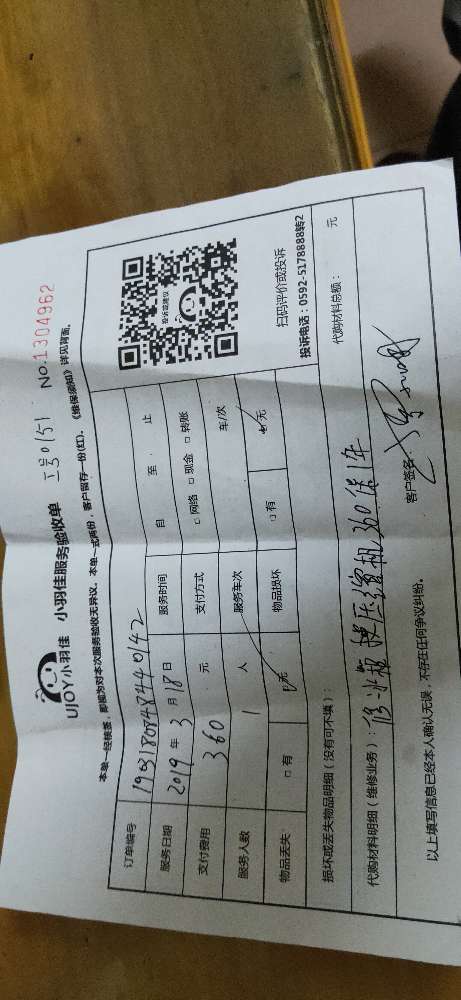 UJOY小羽佳 小羽佳服务验收单 No:1304962
本单一经核查，即视为对本次服务验收无异议。本单一式两份，客户留存一份(红)。《维保须知》详见背面。
订单编号 1903180848440142
服务日期 2019 年 3 月 18 日 服务时间 自 至 止
支付费用 360 元 支付方式 □ 网络 □ 现金 □ 转账
服务人数 1 人 服务车次 车/次
物品丢失 □ 有 □ 无 物品损坏 □ 有 □ 无
投诉或建议
扫码评价或投诉
投诉电话：0592-5178888转2
损坏或丢失物品明细（没有可不填）：
代购材料明细（维修业务）：修冰箱 换压缩机 360 保1年 代购材料总额： 元
以上填写信息已经本人确认无误，不存在任何争议纠纷。 客户签名：